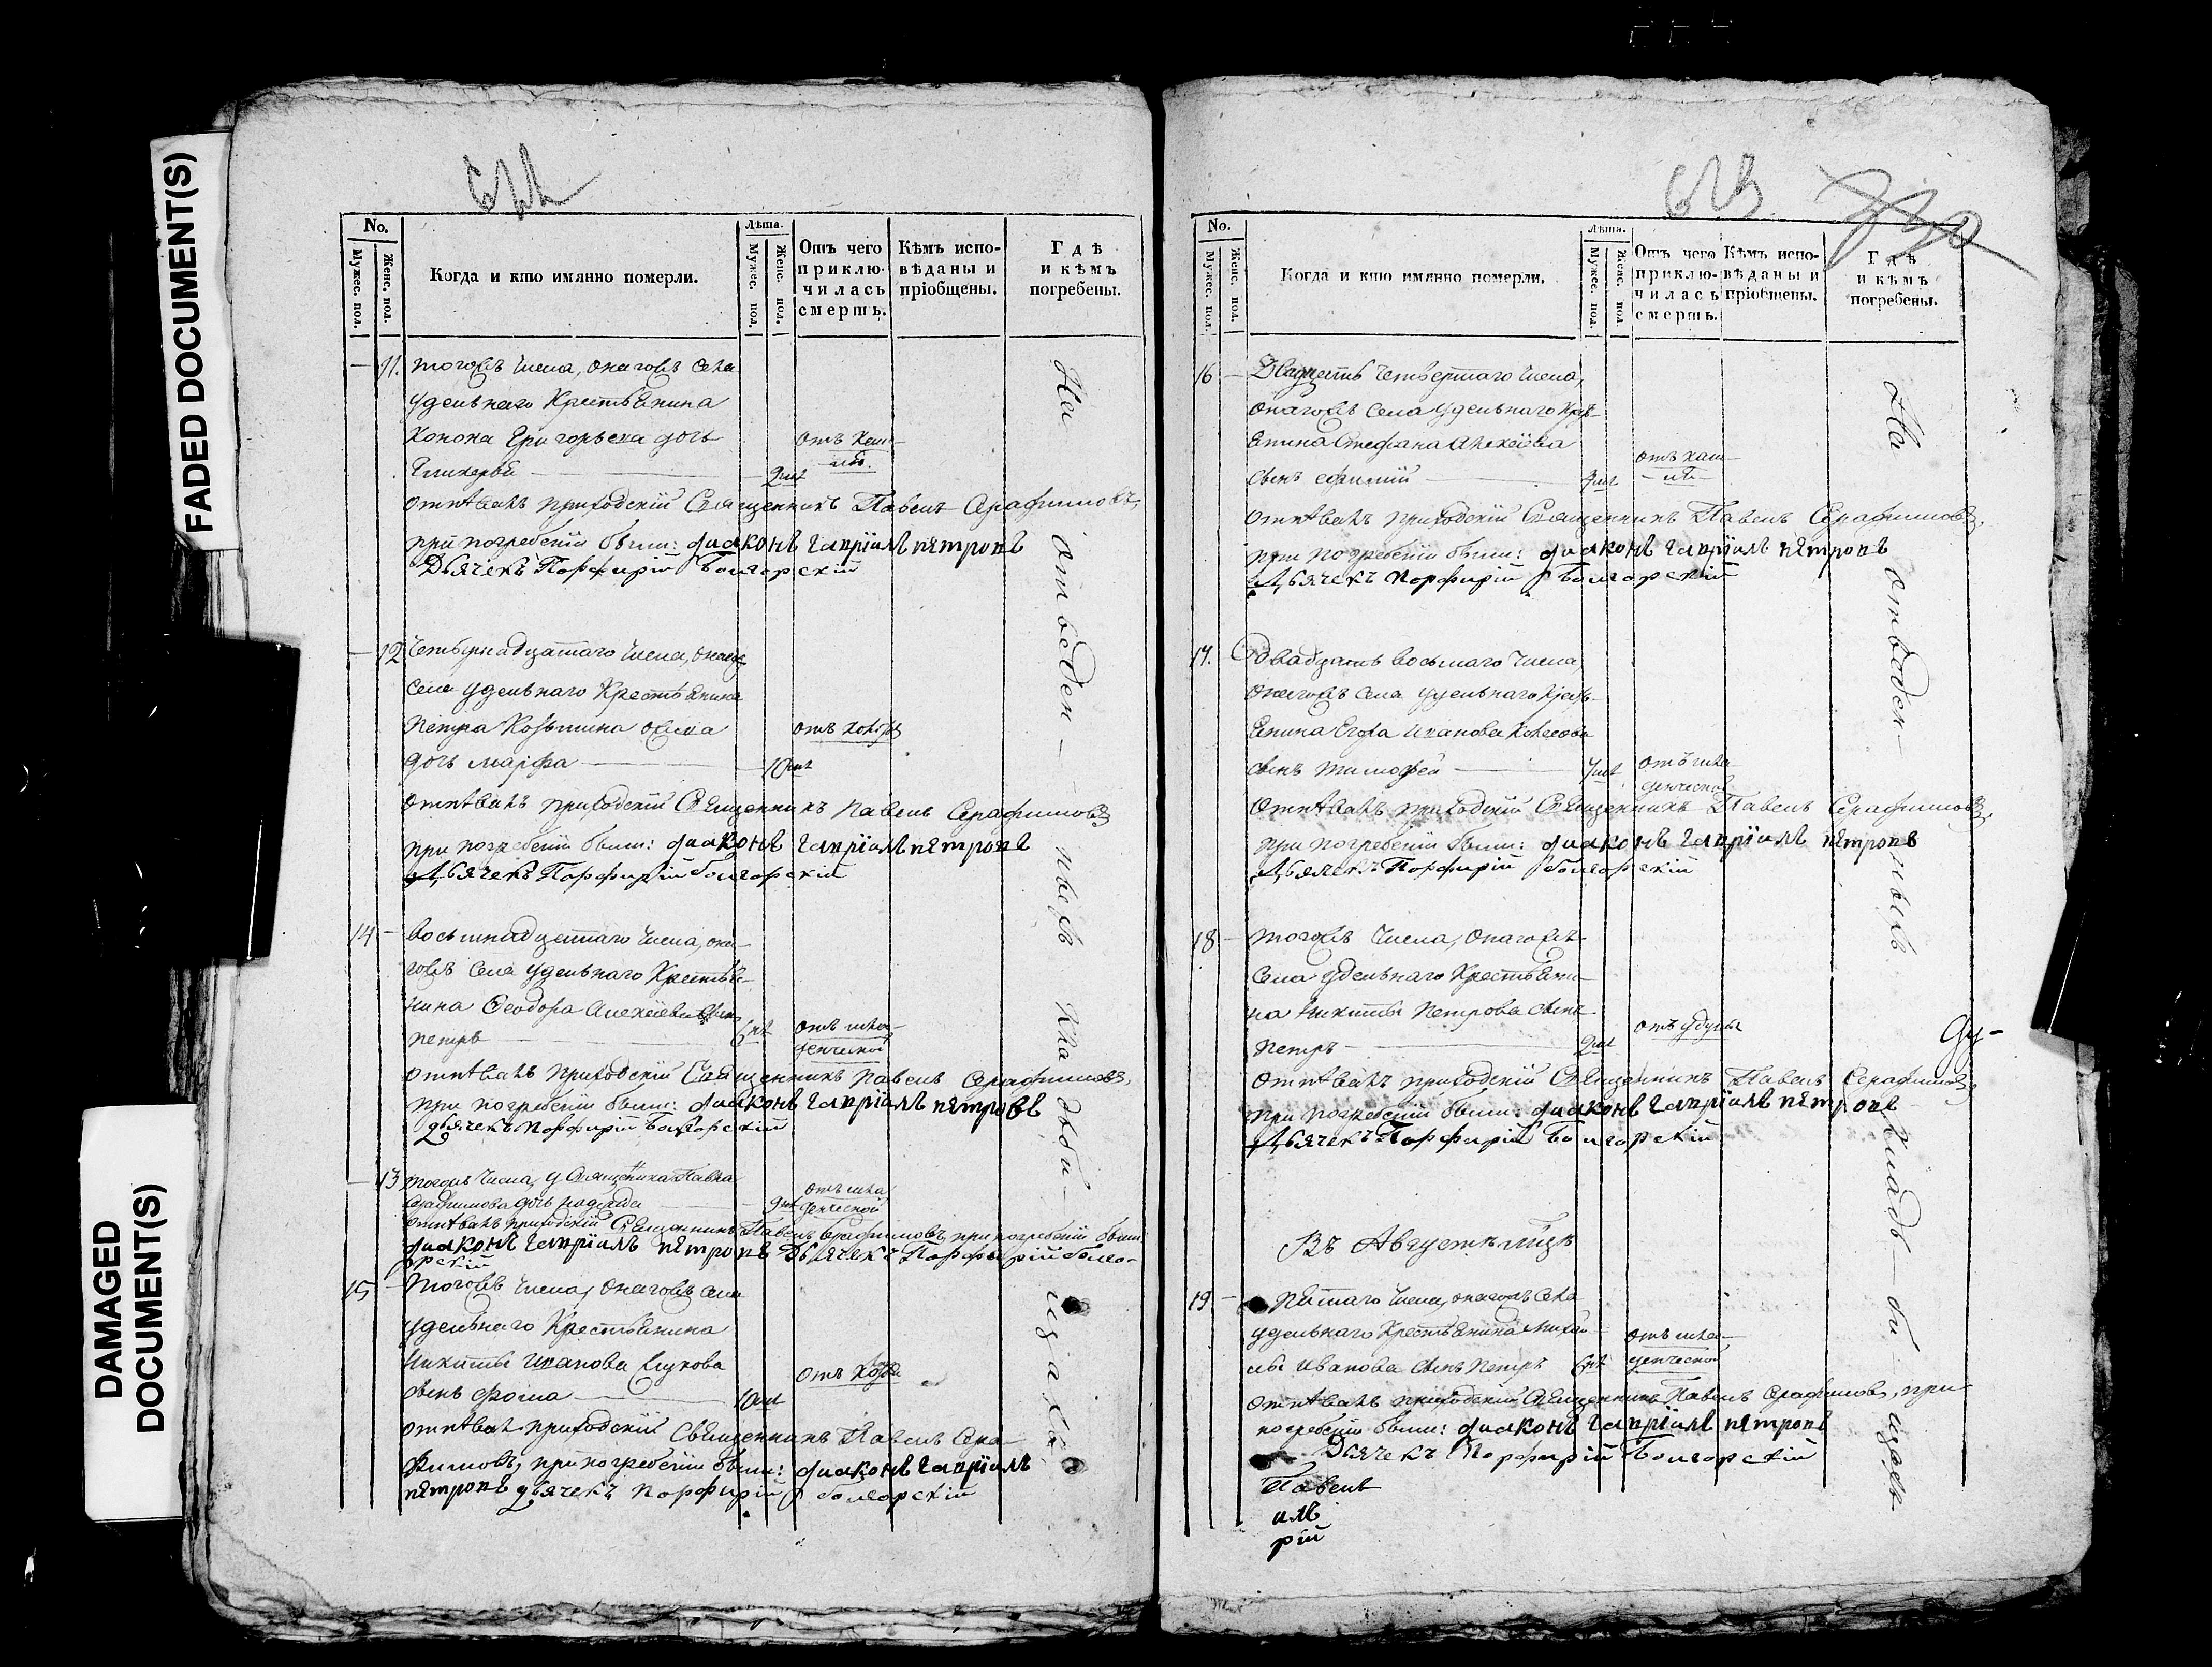 FADED DOCUMENT(S)
DAMAGED
DOCUMENT(S)
No.
Мужес. пол.
Женс. пол.
Когда и кто имянно померли.
Лѣта.
Мужес. пол.
Женс. пол.
Отъ чего
приклю-
чилась
смерть.
Кѣмъ испо-
вѣданы и
пріобщены.
Гдѣ
и кѣмъ
погребены.
— 11. тогожъ числа, онагожъ села
удельнаго Крестьянина
Конона Григорьева дочь
Гликерья — 2 лѣт отъ каш-
ля.
отпѣвалъ приходскій Священникъ Павелъ Серафимовъ,
при погребеніи были: диаконъ гавріилъ пѣтровъ
Дьячекъ Порфирій Болгорскій
— 12 Четырнадцатаго числа, онаго
села удельнаго Крестьянина
Петра Козьмина
дочь марфа — 10
отпѣвалъ приходскій Священникъ Павелъ Серафимовъ
при погребеніи были: диаконъ гавріилъ пѣтровъ
Дьячекъ Порфирій болгорскій
14 — Восьмнадцатаго числа, она-
гожъ села удельнаго Крестья-
нина Феодора Алексѣева сынъ
петръ — 6 отъ мла-
денческой
отпѣвалъ приходскій Священникъ Павелъ Серафимовъ,
при погребеніи были: диаконъ гавріилъ пѣтровъ
дьячекъ Порфирій Болгорскій
— 13 тогожъ числа, у Священника Павла
Серафимова дочь надежда — отъ мла
денческой
отпѣвалъ приходскій Священникъ Павелъ Серафимовъ, при погребеніи были
диаконъ гавріилъ пѣтровъ Дьячекъ Порфирій болго-
рскій
15 — тогожъ числа, онагожъ села
удельнаго Крестьянина
Никиты Иванова
сынъ фома — 10
отпѣвалъ приходскій Священникъ Павелъ Сера
фимовъ, при погребеніи были: диаконъ гавріилъ
пѣтровъ дьячекъ Порфирій болгорскій
На отведен-
кладби-
No.
Мужес. пол.
Женс. пол.
Когда и кто имянно померли.
Лѣта.
Мужес. пол.
Женс. пол.
Отъ чего
приклю-
чилась
смерть.
Кѣмъ испо-
вѣданы и
пріобщены.
Гдѣ
и кѣмъ
погребены.
16 — Двадцать четвертаго числа,
онагожъ села удельнаго Кресть-
янина Стефана Алексѣева
сынъ — отъ каш-
ля
отпѣвалъ приходскій Священникъ Павелъ Серафимовъ,
при погребеніи были: диаконъ гавріилъ пѣтровъ
Дьячекъ Порфирій Болгорскій
17. двадцать восьмаго числа,
онагожъ села удельнаго Кресть-
янина Егора Иванова
сынъ тимофей — отъ мла-
денческой
отпѣвалъ приходскій Священникъ Павелъ Серафимовъ,
при погребеніи были: диаконъ гавріилъ пѣтровъ
Дьячекъ Порфирій болгорскій
18 — тогожъ числа, онагожъ
села удельнаго Крестьяни-
на Никиты Петрова сынъ
петръ — 2
отпѣвалъ приходскій Священникъ Павелъ Серафимовъ,
при погребеніи были: диаконъ гавріилъ пѣтровъ
Дьячекъ Порфирій Болгорскій
Въ Августѣ мцѣ
19 — пятаго числа, онагожъ села
удельнаго Крестьянина Михай-
лы Иванова сынъ Петръ отъ мла-
денческой
отпѣвалъ приходскій Священникъ Павелъ Серафимовъ, при
погребеніи были: диаконъ гавріилъ пѣтровъ
Дьячекъ Порфирій Болгорскій
Павелъ
илъ
рій
На отведен-